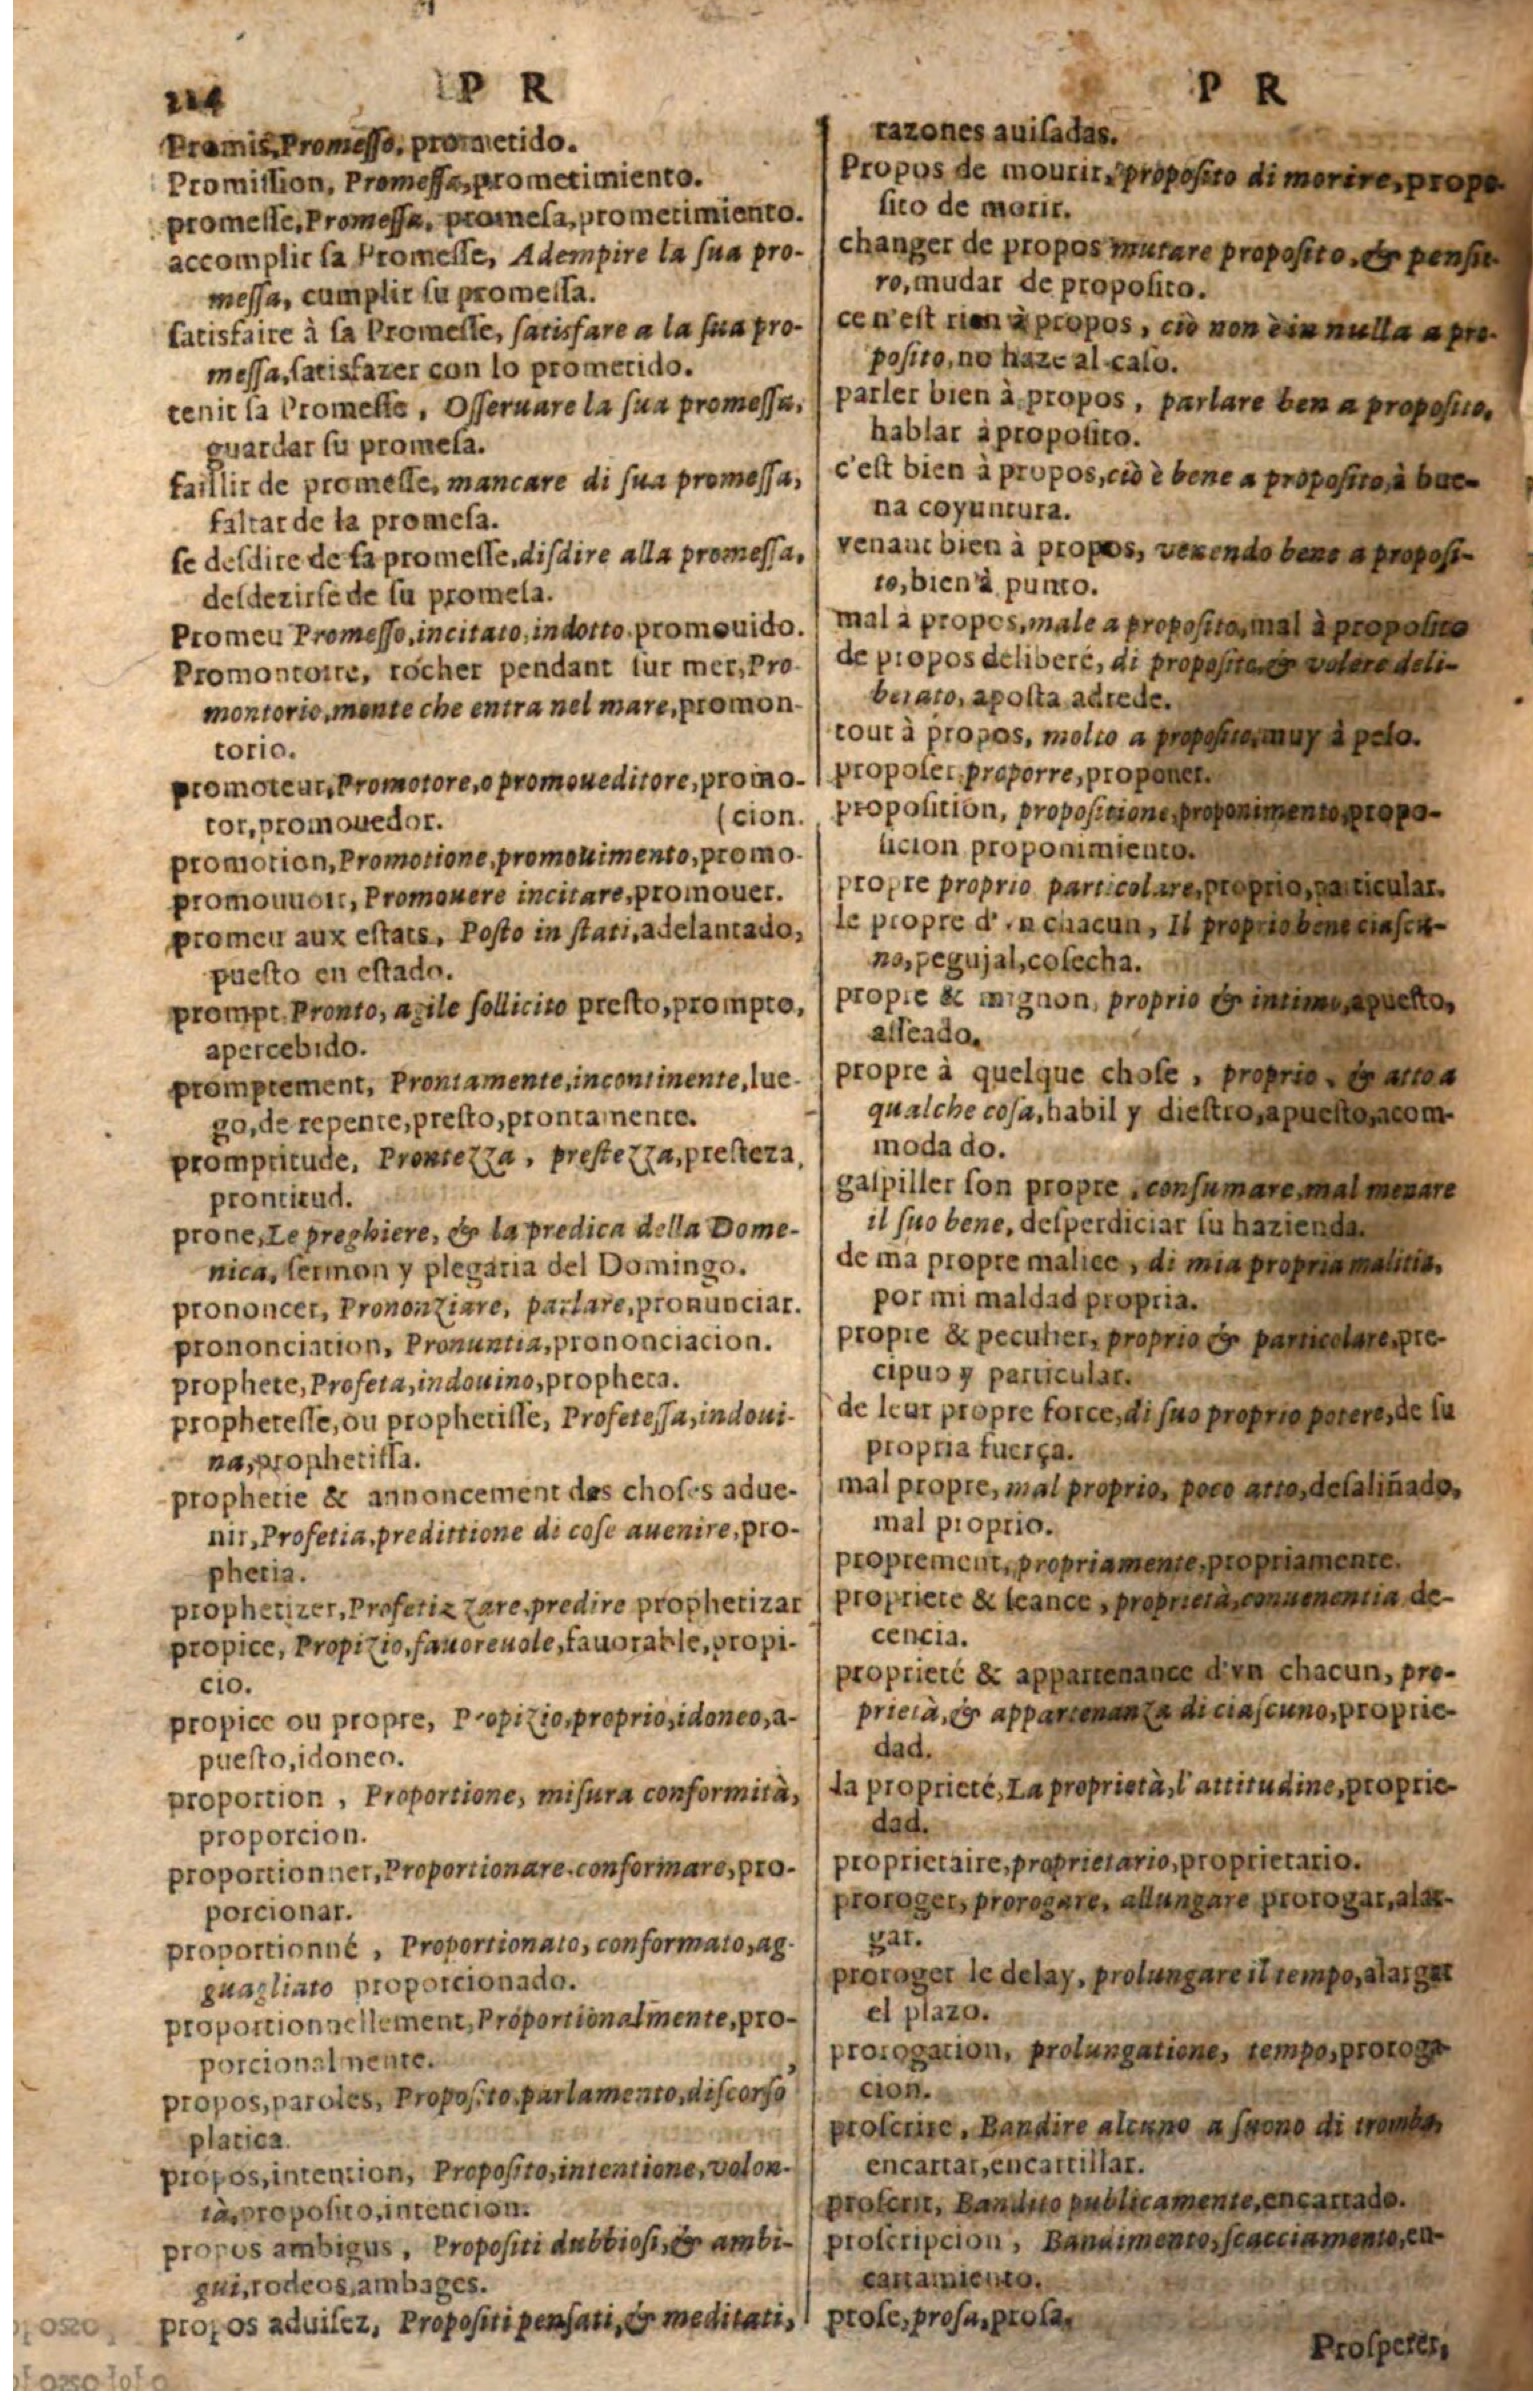 224 P R
Promis, Promesso, prometido.
Promission, Promessa, prometimiento.
promesse, Promessa, promesa, prometimiento.
accomplir sa Promesse, Adempire la sua pro-
messa, cumplir su promessa.
satisfaire à sa Promesse, satisfare a la sua pro-
messa, satisfazer con lo prometido.
tenir sa Promesse, Osseruare la sua promessa,
guardar su promesa.
faillir de promesse, mancare di sua promessa,
faltar de la promesa.
se desdire de sa promesse, disdire alla promessa,
desdezirse de su promesa.
Promeu Promesso, incitato, indotto. promouido.
Promontoire, rocher pendant sur mer, Pro-
montorio, monte che entra nel mare, promon-
torio.
promoteur, Promotore, o promoueditore, promo-
tor, promouedor. (cion.
promotion, Promotione, promouimento, promo-
promouuoir, Promouere incitare, promouer.
promeu aux estats, Posto in stati, adelantado,
puesto en estado.
prompt. Pronto, agile sollicito presto, prompto,
apercebido.
promptement, Prontamente, incontinente, lue-
go, de repente, presto, prontamente.
promptitude, Prontezza, prestezza, presteza,
prontitud.
prone, Le preghiere, & la predica della Dome-
nica, sermon y plegaria del Domingo.
prononcer, Prononziare, parlare, pronunciar.
prononciation, Pronuntia, prononciacion.
prophete, Profeta, indouino, propheta.
prophetesse, ou prophetisse, Profetessa, indoui-
na, prophetissa.
prophetie & annoncement des choses adue-
nir, Profetia, predittione di cose auenire, pro-
phetia.
prophetizer, Profetizzare, predire prophetizar
propice, Propizio, fauoreuole, fauorable, propi-
cio.
propice ou propre, Propizio, proprio, idoneo, a-
puesto, idoneo.
proportion, Proportione, misura conformità,
proporcion.
proportionner, Proportionare. conformare, pro-
porcionar.
proportionné, Proportionato, conformato, ag-
guagliato proporcionado.
proportionnellement, Proportionalmente, pro-
porcionalmente.
propos, paroles, Proposito, parlamento, discorso,
platica.
propos, intention, Proposito, intentione, volon-
tà, proposito, intencion.
propos ambigus, Propositi dubbiosi, & ambi-
gui, rodeos, ambages.
propos aduisez, Propositi pensati, & meditati,
P R
razones auisadas.
Propos de mourir, proposito di morire, propo-
sito de morir.
changer de propos mutare proposito, & pensie-
ro, mudar de proposito.
ce n'est rien à propos, ciò non è in nulla a pro-
posito, no haze al caso.
parler bien à propos, parlare ben a proposito,
hablar à proposito.
c'est bien à propos, ciò è bene a proposito, à bue-
na coyuntura.
venant bien à propos, venendo bene a proposi-
to, bien à punto.
mal à propos, male a proposito, mal à proposito
de propos deliberé, di proposito, & volere deli-
berato, aposta adrede.
tout à propos, molto a proposito, muy à pelo.
proposer, proporre, proponer.
proposition, propositione, proponimento, propo-
sicion proponimiento.
propre proprio particolare, proprio, particular.
le propre d'vn chacun, Il proprio bene ciascu-
no, pegujal, cosecha.
propre & mignon, proprio & intimo, apuesto,
asseado.
propre à quelque chose, proprio, & atto a
qualche cosa, habil y diestro, apuesto, acom-
moda do.
gaspiller son propre, consumare, mal menare
il suo bene, desperdiciar su hazienda.
de ma propre malice, di mia propria malitia,
por mi maldad propria.
propre & peculier, proprio & particolare, pre-
cipuo y particular.
de leur propre force, di suo proprio potere, de su
propria fuerça.
mal propre, mal proprio, poco atto, desaliñado,
mal proprio.
proprement, propriamente, propriamente.
propriete & seance, proprietà, conuenentia de-
cencia.
proprieté & appartenance d'vn chacun, pro-
prietà, & appartenanza di ciascuno, proprie-
dad.
la proprieté, La proprietà, l'attitudine, proprie-
dad.
proprietaire, proprietario, proprietario.
proroger, prorogare, allungare prorogar, alar-
gar.
proroger le delay, prolungare il tempo, alargar
el plazo.
prorogation, prolungatione, tempo, proroga-
cion.
proscrire, Bandire alcuno a suono di tromba,
encartar, encartillar.
proscrit, Bandito publicamente, encartado.
proscripcion, Bandimento, scacciamento, en-
cartamiento.
prose, prosa, prosa.
Prosperer,